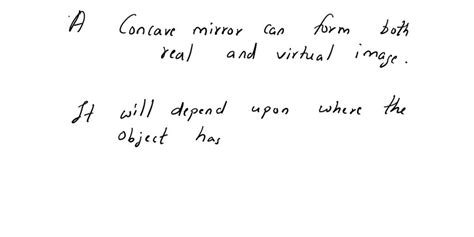 A Concave mirror can form both
real and virtual image.
It will depend upon where the
object has